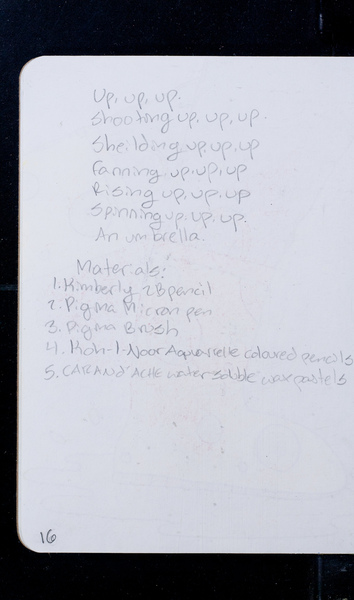 Up, up, up.
Shooting up, up, up.
Sheilding up, up, up
Fanning up, up, up
Rising up, up, up
Spinning up, up, up.
An umbrella.
Materials:
1. Kimberly 2B pencil
2. Pigma Micron pen
3. Pigma Brush
4. Koh-I-Noor Aquarelle coloured pencils
5. CARAN d'ACHE water soluble wax pastels
16